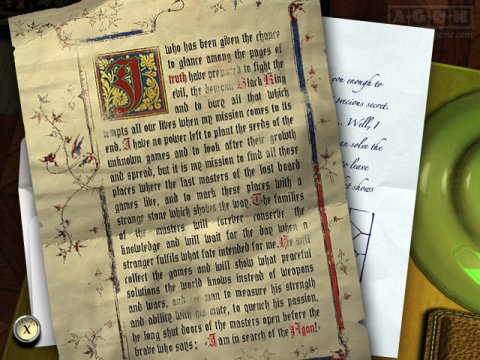 I who has been given the chance
to glance among the pages of
truth have prepared to fight the
evil, the demonic Black King
and to bury all that which
tempts all our lives when my mission comes to its
end. I have no power left to plant the seeds of the
unknown games and to look after their growth
and spread, but it is my mission to find all those
places where the last masters of the lost board
games live, and to mark these places with a
strange stone which shows the way. The families
of the masters will forever conserve the
knowledge and will wait for the day when a
stranger fulfils what fate intended for me. He will
collect the games and will show what peaceful
solutions the world knows instead of weapons
and wars, and for man to measure his strength
and ability with his mate, to quench his passion.
he long shut doors of the masters open before the
brave who says: I am in search of the Agon!
you enough to
precious secret.
... Well, I
can solve the
to leave
t shows
AGON
X